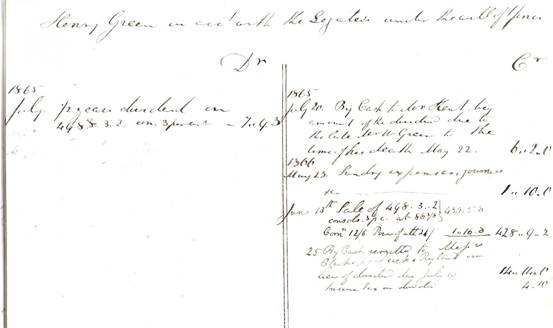 Henry Green in acct with the Legatees under the will of
Dr
1865
July ½ years dividend on
498 8. 3. 2. con. 3 percent - 7. 4. 3
Cr
1865
July 20. By Cash to Mr Kent, by
amount of the dividend due to
the late Mr W Green to the
time of his death May 22. 6. 2. 0
1866
May 23. Sundry expenses, journeys
&c 1. 10. 0
June 13th Sale of 498. 3. 2
consols 3 p.c. at 86 3/8 430. 5. 0
Comn 12/6 Power of att 1. 16. 0 428. 9. 2
25 By Cash remitted to Messrs
Clarke, & in
lieu of dividend due July 10 14. 11. 0
Income tax on divids 4. 10